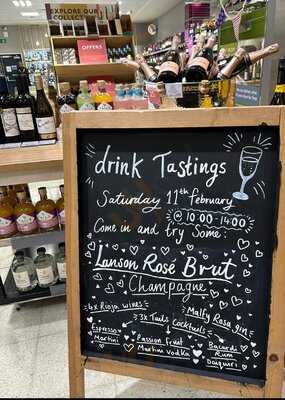 EXPLORE OUR
COLLECT
OFFERS
drink Tastings
Saturday 11th february
@ 10:00-14:00
Come in and try Some:
Lanson Rosé Brut
Champagne
4x Rioja wines
Malfy Rosa gin
3x Tails Cocktails
Espresso Martini
Passion fruit Martini Vodka
Bacardi Rum Daiquiri